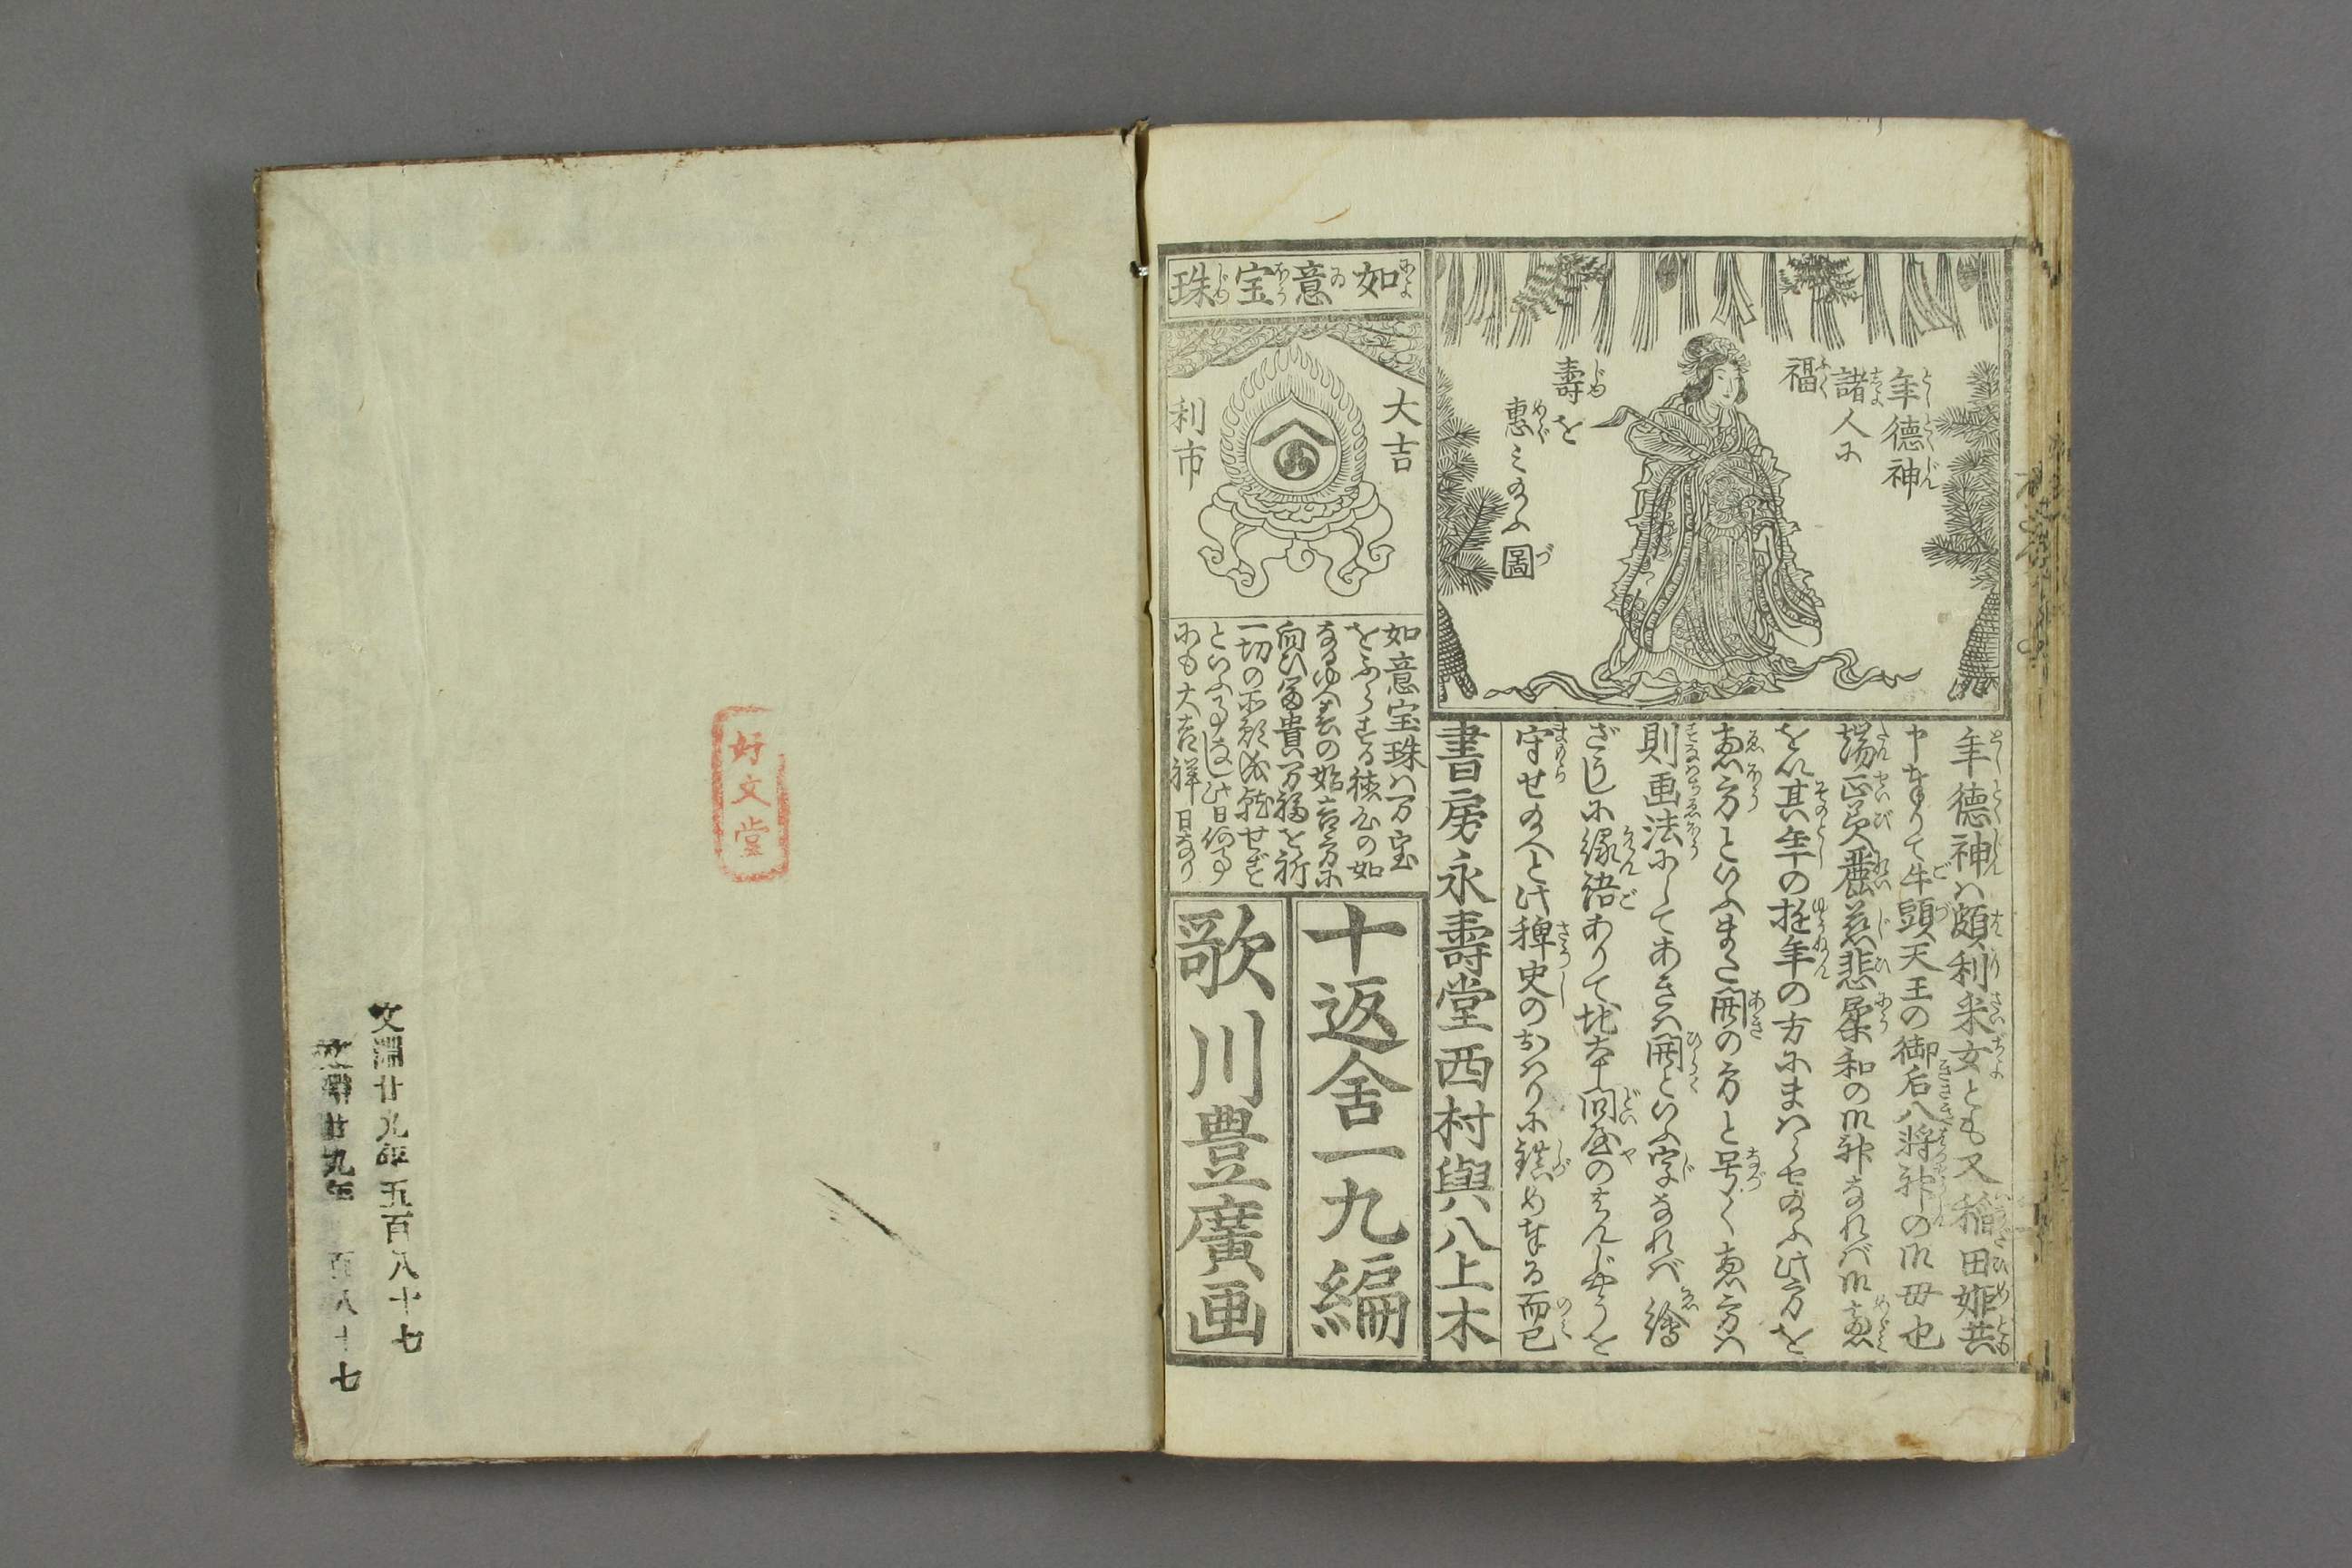 年徳神
諸人に
福
壽を
惠ミ給ふ圖
年徳神ハ頗利釆女とも又稲田姫共
申奉りて牛頭天王の御后八将神の御母也
端正美麗慈悲柔和の御神なれバ御恵
を以其年の遊年の方にまハらせ給ふ此方を
恵方といふまた開の方と号く恵方ハ
則画法にしてあきハ開といふ字なれバ繪
ざうしに縁語ありて地本問屋のはんじやうを
守せ給へと此稗史のおハりに鎮め奉る而已
書房永壽堂西村與八上木
如意宝珠
大吉
利市
如意宝珠ハ万宝
をふらする徳光の如
なるゆへ春の始吉方に
向ひ冨貴万福を祈
一切の所願成就せず
といふ事なし此日何事
にも大吉祥日なり
十返舍一九編
歌川豊廣画
好文堂
文淵廿九年五百八十七
廿九年 百八十七